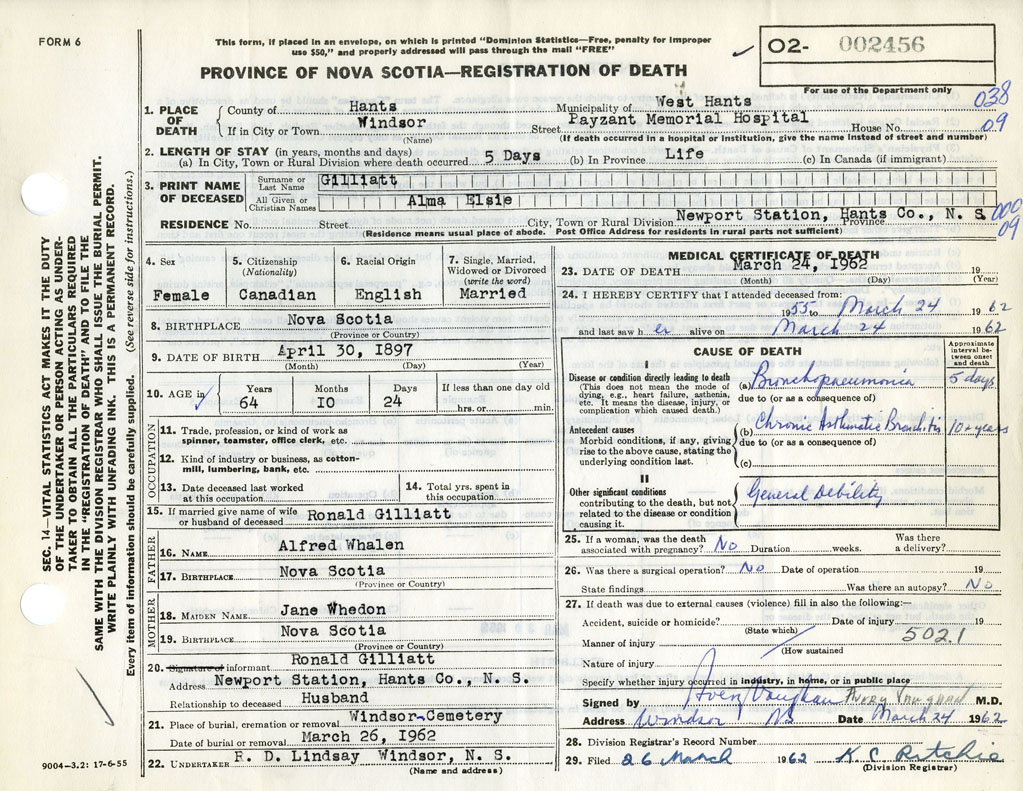 FORM 6
This form, if placed in an envelope, on which is printed "Dominion Statistics—Free, penalty for improper
use $50," and properly addressed will pass through the mail "FREE"
O2- 002456
For use of the Department only
PROVINCE OF NOVA SCOTIA—REGISTRATION OF DEATH
038
09
1. PLACE OF DEATH
County of Hants Municipality of West Hants
If in City or Town Windsor Street Payzant Memorial Hospital House No.
(Name) (If death occurred in a hospital or institution, give the name instead of street and number)
2. LENGTH OF STAY (in years, months and days)
(a) In City, Town or Rural Division where death occurred 5 Days (b) In Province Life (c) In Canada (if immigrant)
3. PRINT NAME OF DECEASED
Surname or Last Name Gilliatt
All Given or Christian Names Alma Elsie
RESIDENCE No. Street City, Town or Rural Division Newport Station, Hants Co., N. S. Province
(Residence means usual place of abode. Post Office Address for residents in rural parts not sufficient)
000
09
4. Sex
Female
5. Citizenship
(Nationality)
Canadian
6. Racial Origin
English
7. Single, Married,
Widowed or Divorced
(write the word)
Married
8. BIRTHPLACE Nova Scotia
(Province or Country)
9. DATE OF BIRTH April 30, 1897
(Month) (Day) (Year)
10. AGE in
Years 64
Months 10
Days 24
If less than one day old
hrs. or min.
OCCUPATION
11. Trade, profession, or kind of work as
spinner, teamster, office clerk, etc.
12. Kind of industry or business, as cotton-
mill, lumbering, bank, etc.
13. Date deceased last worked
at this occupation
14. Total yrs. spent in
this occupation
15. If married give name of wife
or husband of deceased Ronald Gilliatt
FATHER
16. NAME Alfred Whalen
17. BIRTHPLACE Nova Scotia
(Province or Country)
MOTHER
18. MAIDEN NAME Jane Whedon
19. BIRTHPLACE Nova Scotia
(Province or Country)
20. Signature of informant Ronald Gilliatt
Address Newport Station, Hants Co., N. S.
Relationship to deceased Husband
21. Place of burial, cremation or removal Windsor-Cemetery
Date of burial or removal March 26, 1962
22. UNDERTAKER F. D. Lindsay Windsor, N. S.
(Name and address)
MEDICAL CERTIFICATE OF DEATH
23. DATE OF DEATH March 24, 1962 19
(Month) (Day) (Year)
24. I HEREBY CERTIFY that I attended deceased from:
1955 to March 24 1962
and last saw her alive on March 24 1962
CAUSE OF DEATH
Approximate
interval be-
tween onset
and death
I
Disease or condition directly leading to death
(This does not mean the mode of
dying, e.g., heart failure, asthenia,
etc. It means the disease, injury, or
complication which caused death.)
(a) Bronchopneumonia 5 days
due to (or as a consequence of)
Antecedent causes
Morbid conditions, if any, giving
rise to the above cause, stating the
underlying condition last.
(b) Chronic Asthmatic Bronchitis 10 + years
due to (or as a consequence of)
(c)
II
Other significant conditions
contributing to the death, but not
related to the disease or condition
causing it.
General Debility
25. If a woman, was the death
associated with pregnancy? No Duration weeks. Was there
a delivery?
26. Was there a surgical operation? No Date of operation 19
State findings Was there an autopsy? No
27. If death was due to external causes (violence) fill in also the following:—
Accident, suicide or homicide? Date of injury 19
(State which)
502.1
Manner of injury
(How sustained
Nature of injury
Specify whether injury occurred in industry, in home, or in public place
Signed by Avery Vaughan Avery Vaughan M.D.
Address Windsor NS Date March 24 1962
28. Division Registrar's Record Number
29. Filed 26 March 1962 K C Ritchie
(Division Registrar)
SEC. 14—VITAL STATISTICS ACT MAKES IT THE DUTY
OF THE UNDERTAKER OR PERSON ACTING AS UNDER-
TAKER TO OBTAIN ALL THE PARTICULARS REQUIRED
IN THE "REGISTRATION OF DEATH" AND TO FILE THE
SAME WITH THE DIVISION REGISTRAR WHO SHALL ISSUE THE BURIAL PERMIT.
WRITE PLAINLY WITH UNFADING INK. THIS IS A PERMANENT RECORD.
Every item of information should be carefully supplied. (See reverse side for instructions.)
9004-3.2: 17-6-55